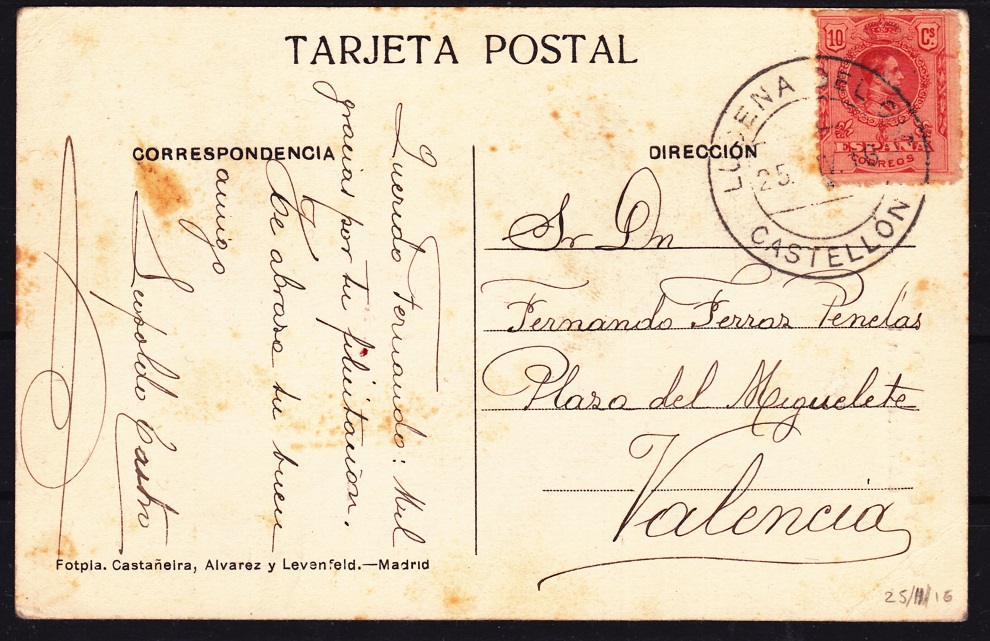 TARJETA POSTAL
CORRESPONDENCIA
Querido Fernando: Mil
gracias por tu felicitación.
Te abraza tu buen
amigo
Leopoldo Castro
Fotpia. Castañeira, Alvarez y Levenfeld.—Madrid
DIRECCIÓN
Sr Dn
Fernando Ferraz Penelas
Plaza del Miguelete
Valencia
10 Cs.
ESPAÑA
CORREOS
LUCENA DEL
25.
CASTELLÓN
25/II/16